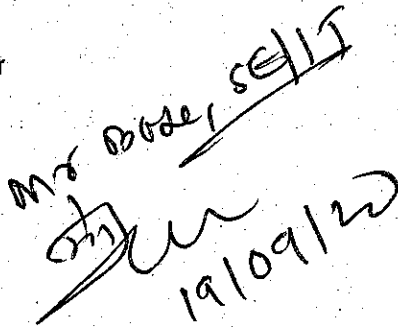 Mr Bose, SE/IT
19/09/20